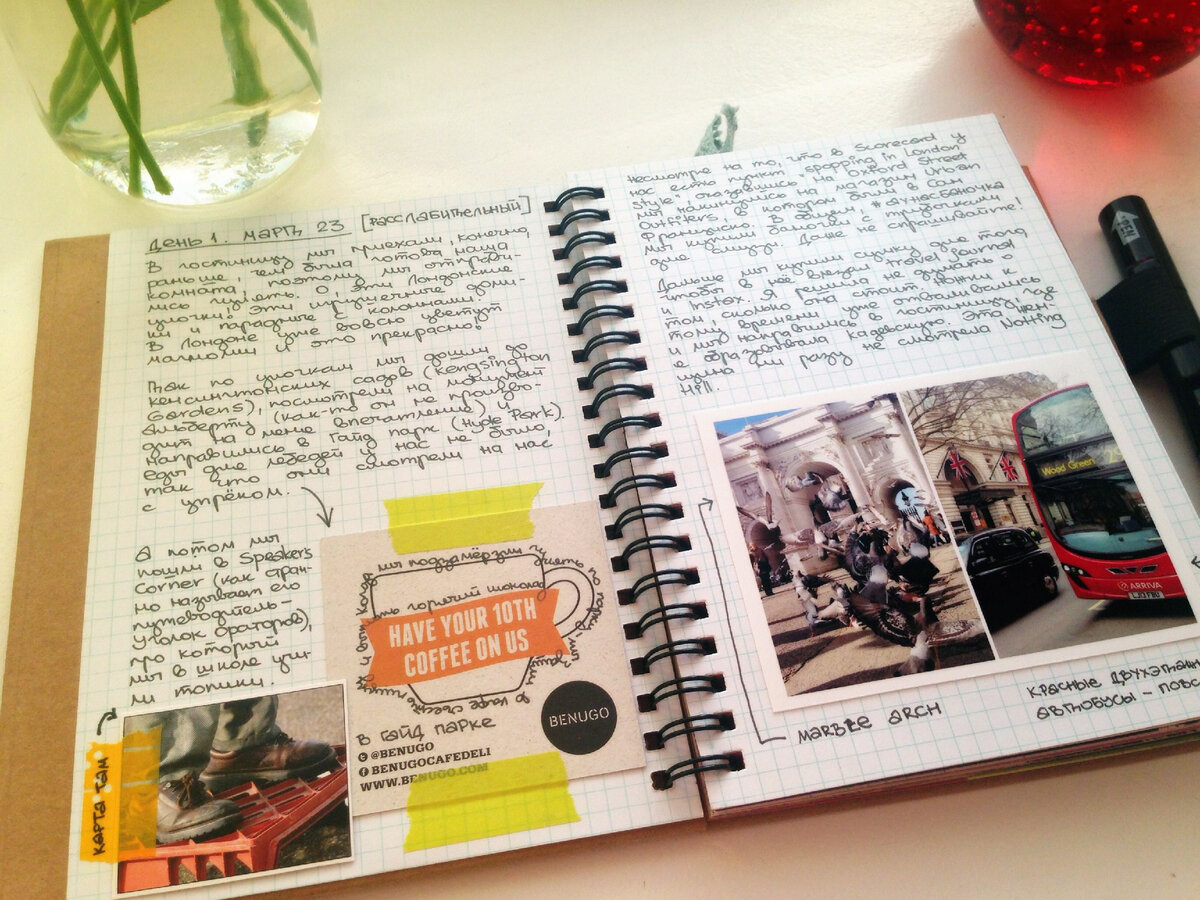 День 1. Март, 23 [расслабительный]
В гостиницу мы приехали, конечно,
раньше, чем была готова наша
комната, поэтому мы отправи-
лись гулять. О, эти лондонские
улочки! Эти игрушечные доми-
ки и парадные с колоннами.
В Лондоне уже вовсю цветут
магнолии и это прекрасно!
Так по улочкам мы дошли до
Кенсингтонских садов (Kengsington
Gardens), посмотрели на монумент
Альберту (как-то он не произво-
дит на меня впечатление) и
направились в Гайд парк (Hyde Park).
Еды для лебедей у нас не было,
так что они смотрели на нас
с упрёком.
А потом мы
пошли в Speakers
Corner (как стран-
но называет его
путеводитель-
уголок ораторов),
про который
мы в школе учи-
ли топики.
карта там
когда мы подзамёрзли гулять по парку-мы
горячий шоколад
HAVE YOUR 10TH
COFFEE ON US
BENUGO
в Гайд парке
@BENUGO
BENUGOCAFEDELI
WWW.BENUGO.COM
Несмотря на то, что в Scorecard у
нас есть пункт „shopping in London
style", оказавшись на Oxford Street
мы накинулись на магазин Urban
Outfitters, в котором были в Сан
Франциско. В общем #думсаночка
мы купили баночки с трубочками
для смузи. Даже не спрашивайте!
Дальше мы купили сумку для того
чтобы в неё влезал travel journal
и Instax. Я решила не думать о
том, сколько она стоит. Ножки к
тому времени уже отваливались
и мы направились в гостиницу, где
я образовывала Кадевскую. Эта жен-
щина ни разу не смотрела Notting
Hill.
Wood Green
ARRIVA
MARBLE ARCH
красные двухэтажн
автобусы - повс
PEN